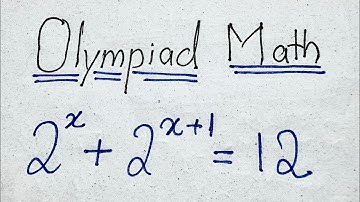 Olympiad Math
2ˣ + 2ˣ⁺¹ = 12